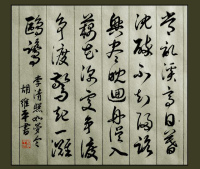 常記溪亭日暮
沈醉不知歸路
興盡晚回舟誤入
藕花深處爭渡
爭渡驚起一灘
鷗鷺
李清照如夢令
胡維平書